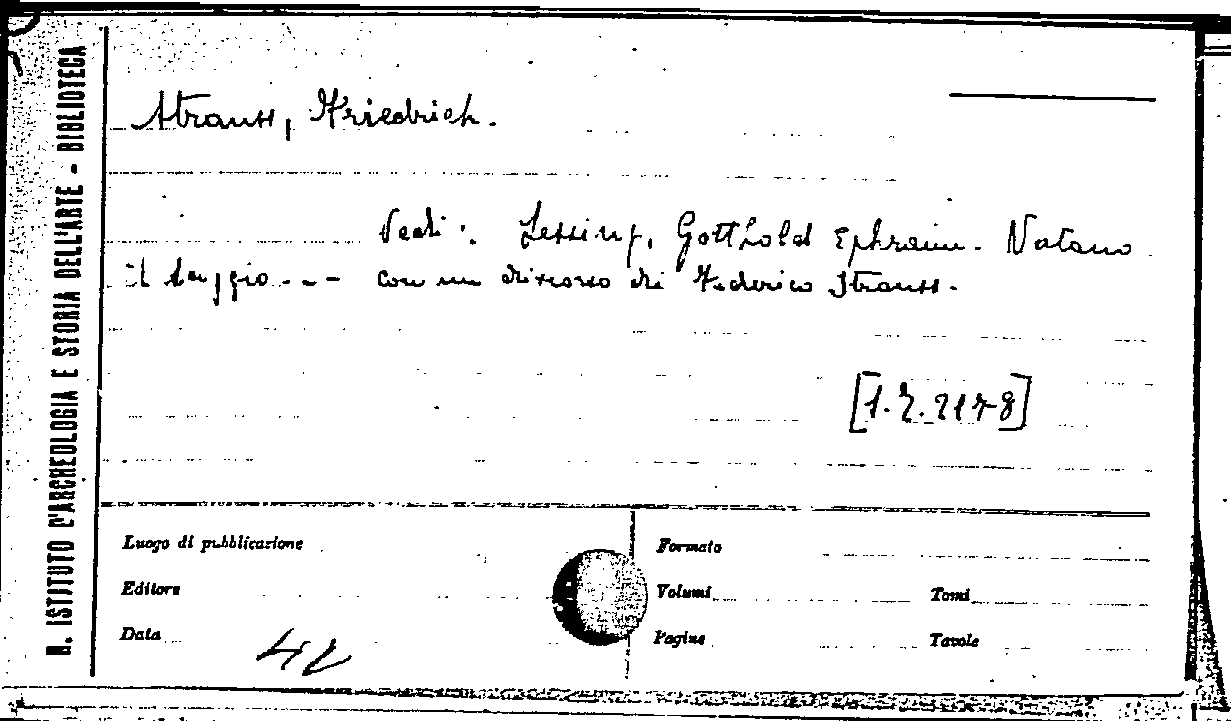 R. ISTITUTO D'ARCHEOLOGIA E STORIA DELL'ARTE - BIBLIOTECA
Strauss, Friedrich.
Vedi: Lessing, Gotthold Ephraim. Natano
il saggio --- con un discorso di Federico Strauss.
Luogo di pubblicazione
Formato
Editore
Volumi
Tomi
Data
Pagine
Tavole